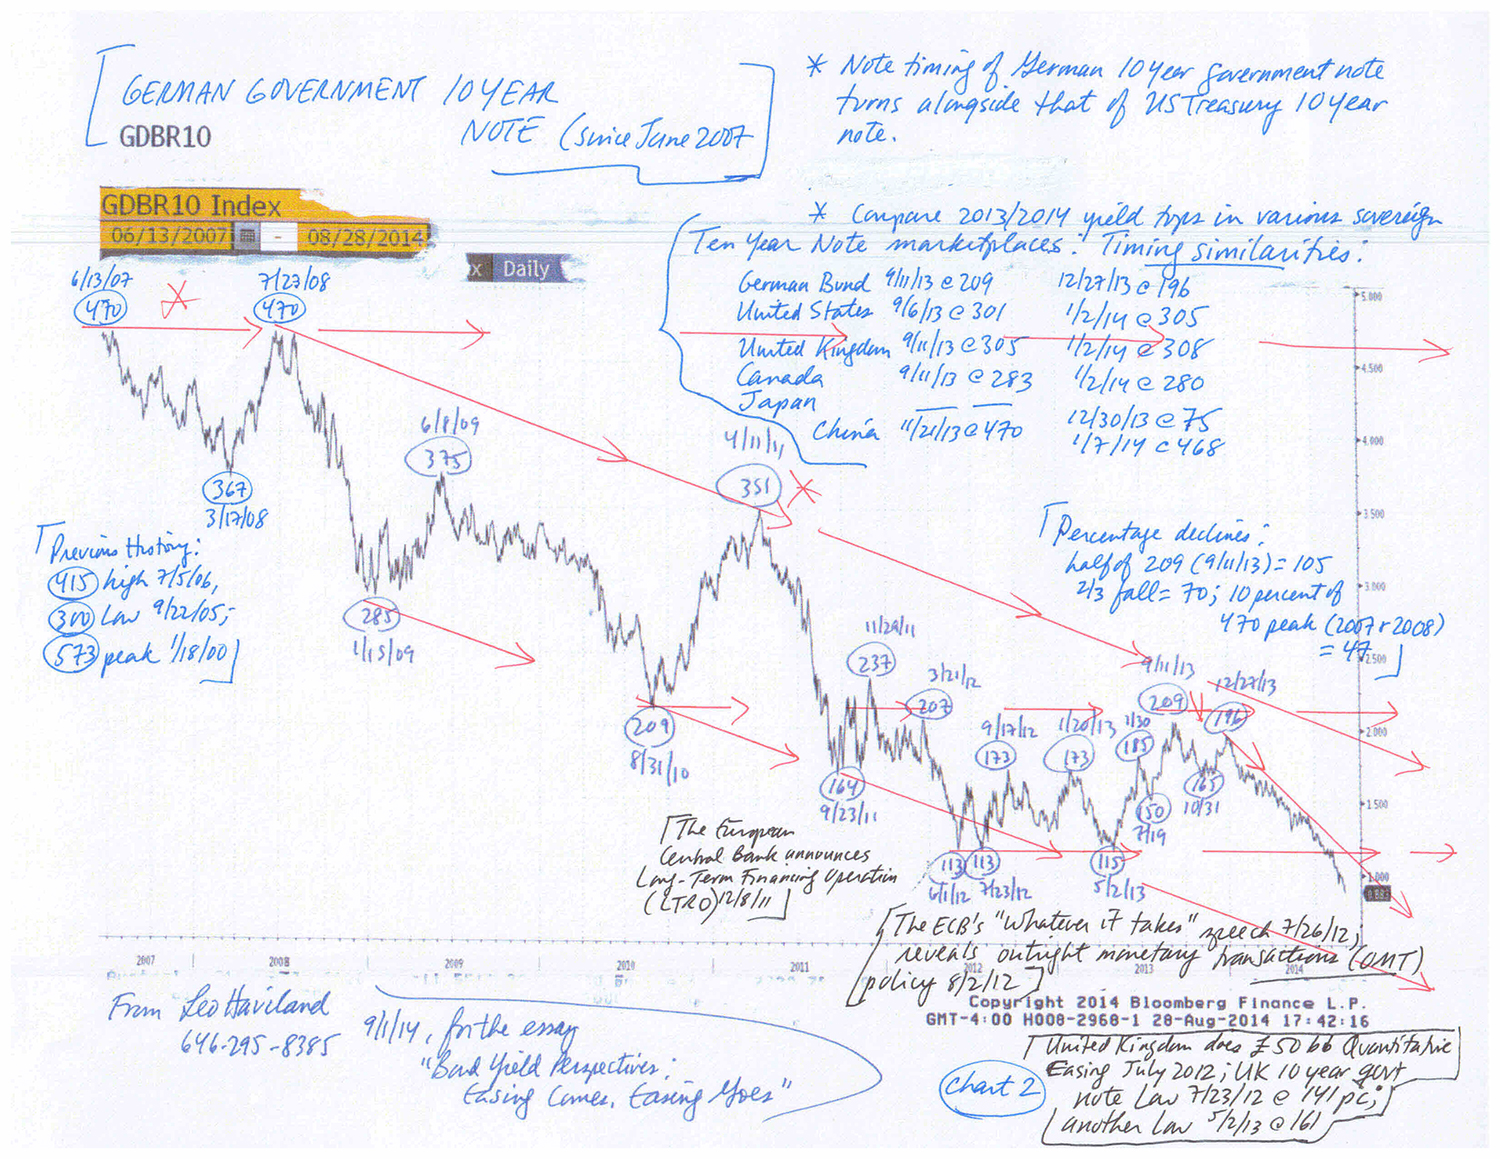 GERMAN GOVERNMENT 10 YEAR
NOTE (since June 2007
GDBR10
* Note timing of German 10 year government note
turns alongside that of US Treasury 10 year
note.
GDBR10 Index
06/13/2007 - 08/28/2014
x Daily
* Compare 2013/2014 yield tops in various sovereign
Ten Year Note marketplaces. Timing similarities:
German Bund 9/11/13 @ 209 12/27/13 @ 196
United States 9/6/13 @ 301 1/2/14 @ 305
United Kingdom 9/11/13 @ 305 1/2/14 @ 308
Canada 9/11/13 @ 283 1/2/14 @ 280
Japan — — 12/30/13 @ 75
China 11/21/13 @ 470 1/7/14 @ 468
6/13/07
470
7/27/08
470
367
3/17/08
6/8/09
375
4/11/11
351
Previous History:
415 high 7/5/06,
300 Low 9/22/05;
573 peak 1/18/00
285
1/15/09
209
8/31/10
11/29/11
237
3/21/12
207
164
9/23/11
9/17/12
173
1/20/13
173
1/30
185
9/11/13
209
12/27/13
196
150
7/19
165
10/31
113
6/1/12
113
7/23/12
115
5/2/13
Percentage declines:
half of 209 (9/11/13) = 105
2/3 fall = 70; 10 percent of
470 peak (2007 + 2008)
= 47
5.000
4.500
4.000
3.500
3.000
2.500
2.000
1.500
1.000
The European
Central Bank announces
Long-Term Financing Operation
(LTRO) 12/8/11
The ECB's "Whatever it takes" speech 7/26/12,
reveals outright monetary transactions (OMT)
policy 8/2/12
2007 2008 2009 2010 2011 2012 2013 2014
Copyright 2014 Bloomberg Finance L.P.
GMT-4:00 H008-2968-1 28-Aug-2014 17:42:16
From Leo Haviland
646-295-8385
9/1/14, for the essay
"Bond Yield Perspectives:
Easing Comes, Easing Goes"
Chart 2
United Kingdom does £50bb Quantitative
Easing July 2012; UK 10 year govt
note Low 7/23/12 @ 141 pc;
another Low 5/2/13 @ 161